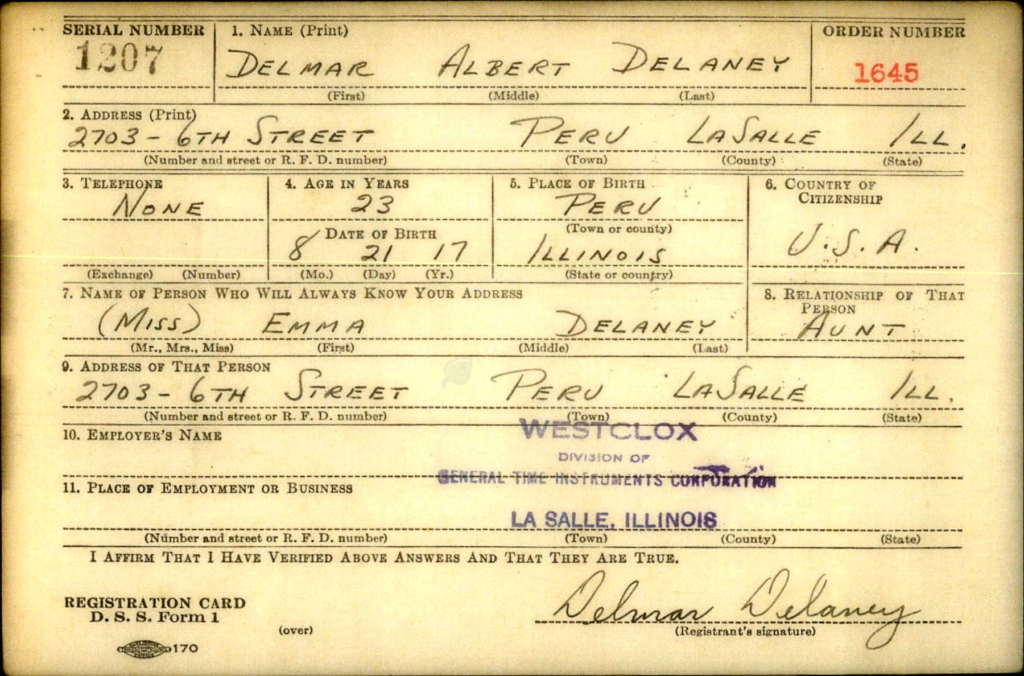 SERIAL NUMBER 1. NAME (Print) ORDER NUMBER
1207 DELMAR ALBERT DELANEY 1645
(First) (Middle) (Last)
2. ADDRESS (Print)
2703 - 6TH STREET PERU LASALLE ILL.
(Number and street or R. F. D. number) (Town) (County) (State)
3. TELEPHONE 4. AGE IN YEARS 5. PLACE OF BIRTH 6. COUNTRY OF CITIZENSHIP
NONE 23 PERU
DATE OF BIRTH (Town or county)
8 21 17 ILLINOIS U.S.A.
(Exchange) (Number) (Mo.) (Day) (Yr.) (State or country)
7. NAME OF PERSON WHO WILL ALWAYS KNOW YOUR ADDRESS 8. RELATIONSHIP OF THAT PERSON
(MISS) EMMA DELANEY AUNT
(Mr., Mrs., Miss) (First) (Middle) (Last)
9. ADDRESS OF THAT PERSON
2703 - 6TH STREET PERU LASALLE ILL.
(Number and street or R. F. D. number) (Town) (County) (State)
10. EMPLOYER'S NAME WESTCLOX
DIVISION OF
GENERAL TIME INSTRUMENTS CORPORATION
11. PLACE OF EMPLOYMENT OR BUSINESS
LA SALLE, ILLINOIS
(Number and street or R. F. D. number) (Town) (County) (State)
I AFFIRM THAT I HAVE VERIFIED ABOVE ANSWERS AND THAT THEY ARE TRUE.
REGISTRATION CARD
D. S. S. Form 1 Delmar Delaney
(over) (Registrant's signature)
170